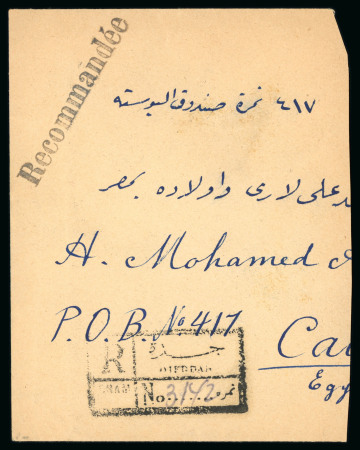 Recommandée
٤١٧ نمرة صندوق البوسته
على لارى واولاده بمصر
H. Mohamed
P.O.B. No. 417
Ca
Egy
R
جدة
DJEDDAH
No 3142 نمرو